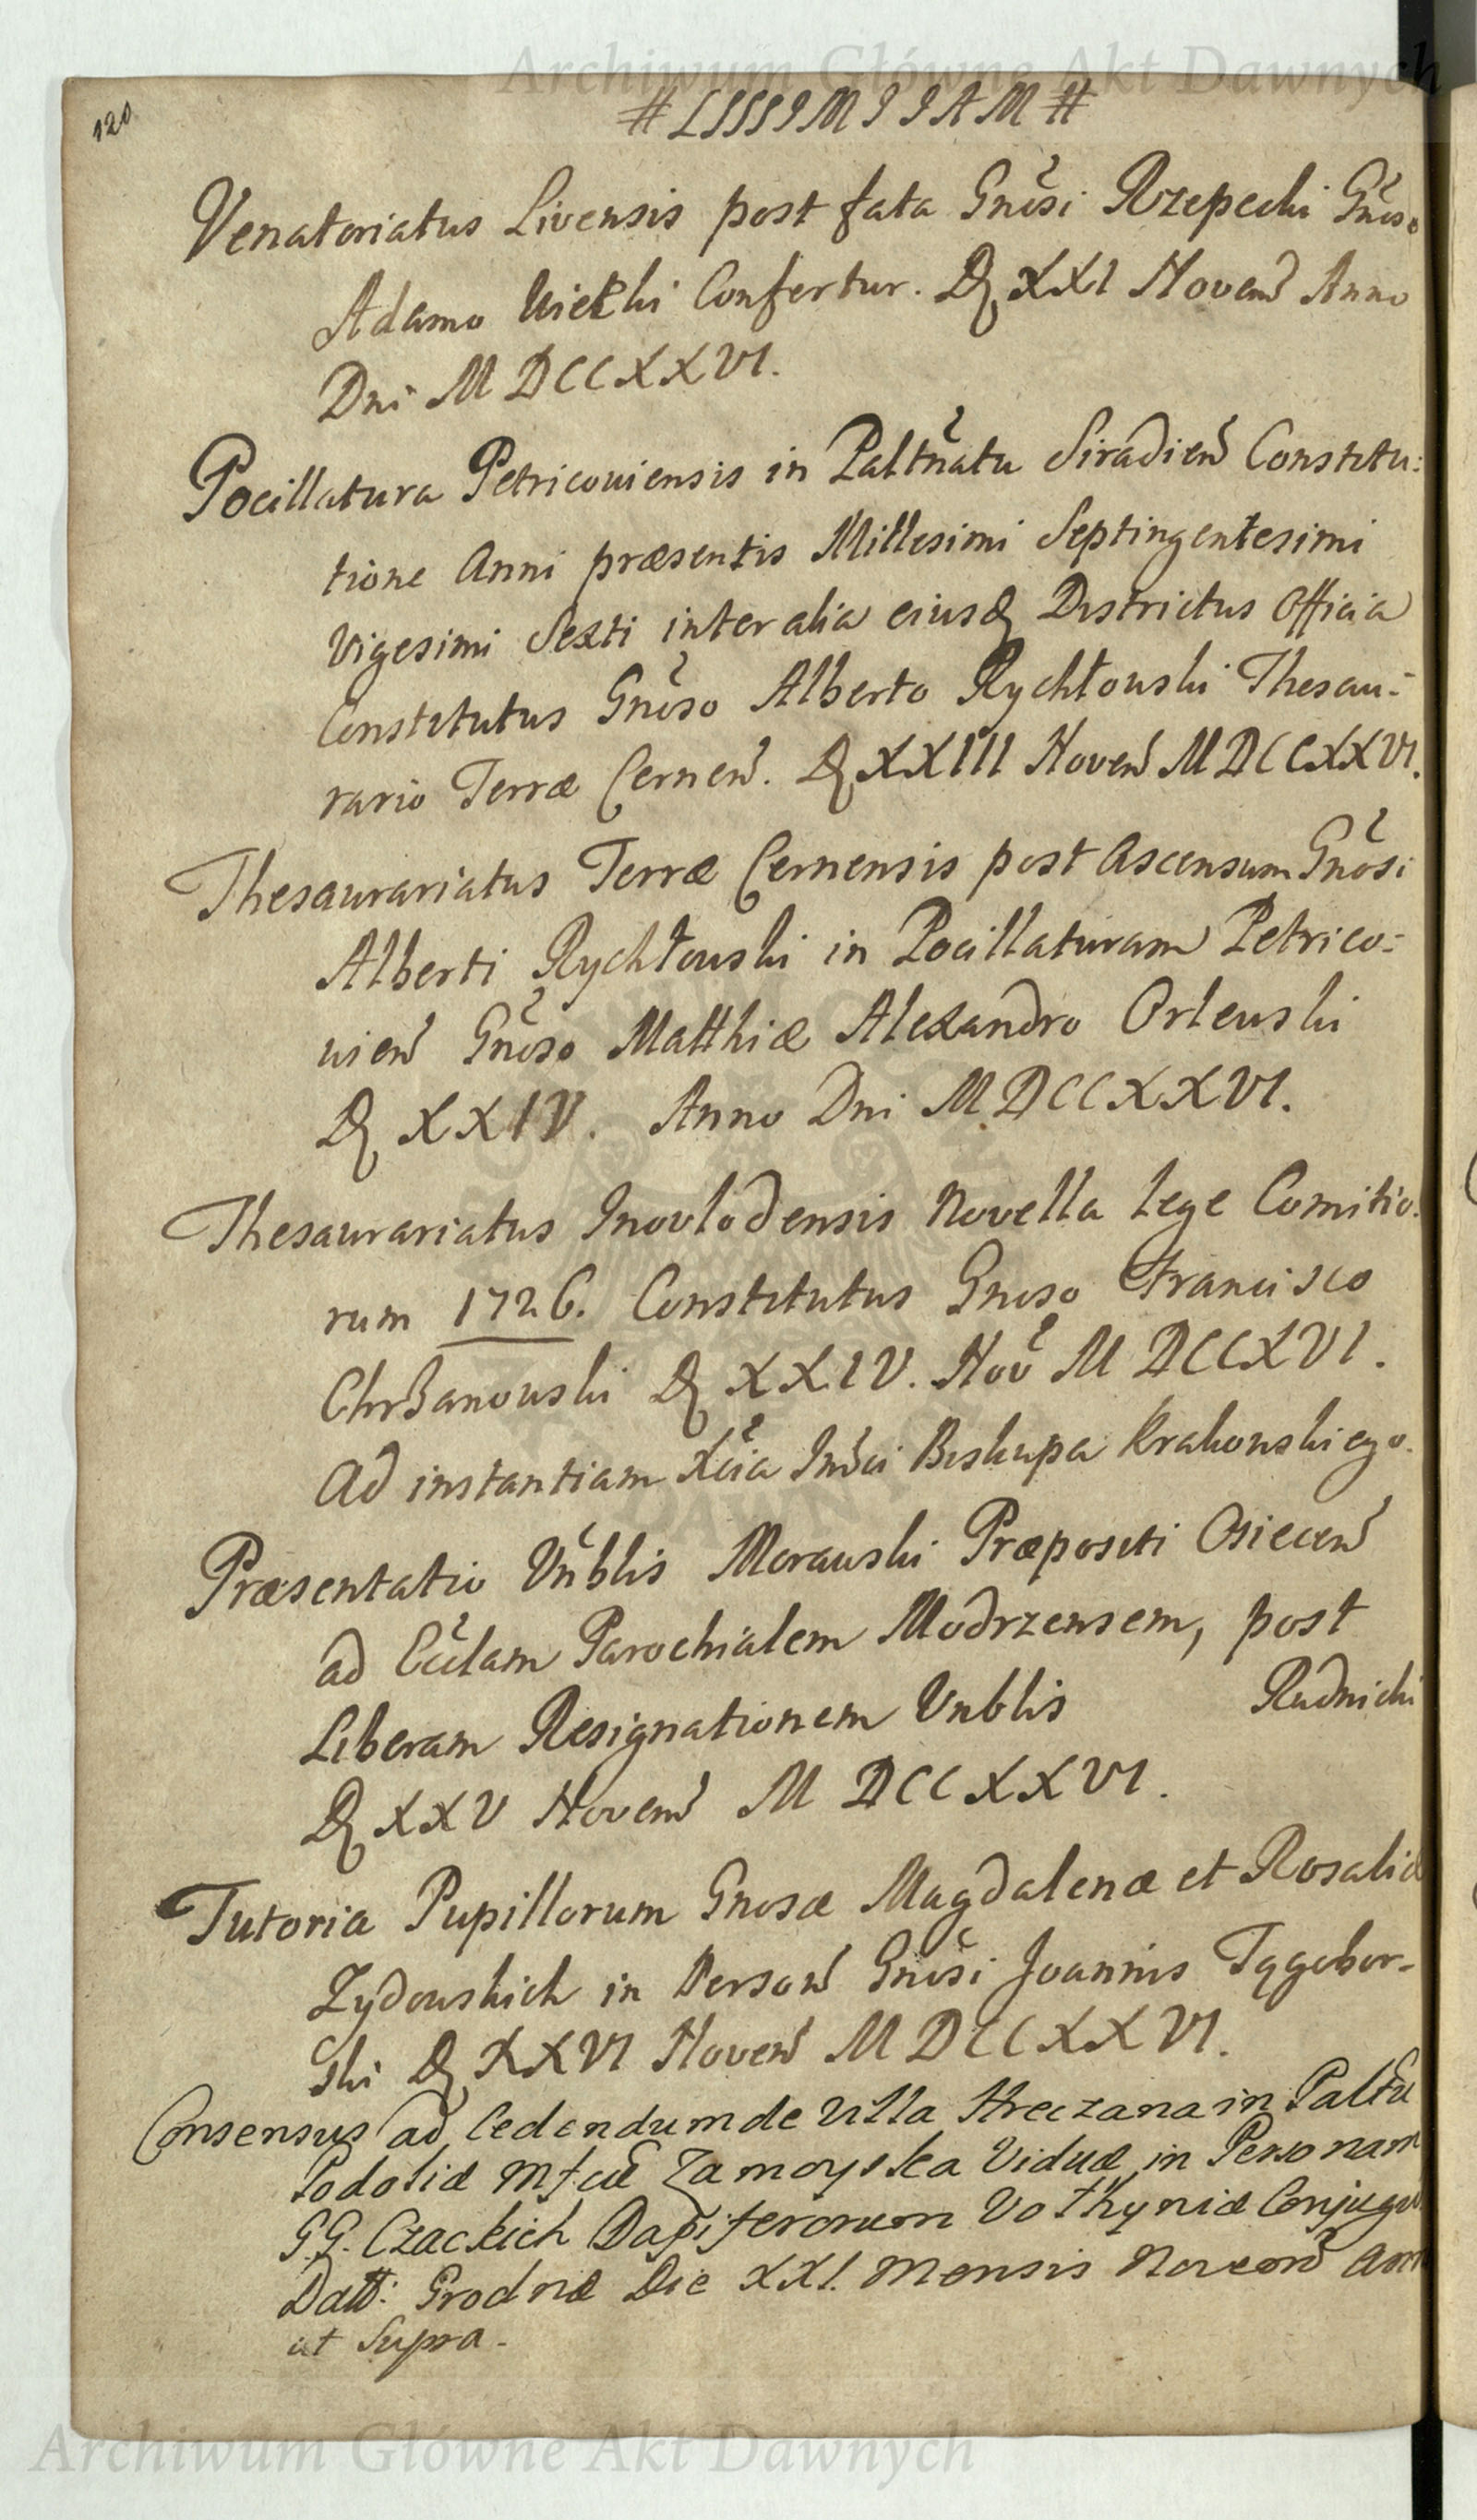 Archiwum Główne Akt Dawnych
120
# LISSIMIIAM #
Venatoriatus Livensis post fata Gnosi Rzepecki Gnoso
Adamo Confertur. D XXI Novem Anno
Dni MDCCXXVI.
Pocillatura Petricoviensis in Paltnatu Siradien Constitu:
tione Anni præsentis Millesimi Septingentesimi
Vigesimi Sexti inter alia eiusq Districtus Officia
Constitutus Gnoso Alberto Rychłowski Thesau:
rario Terræ Cernen. D XXIII Novem MDCCXXVI.
Thesaurariatus Terræ Cernensis post Ascensum Gnosi
Alberti Rychłowski in Pocillaturam Petrico:
vien Gnoso Matthiæ Alexandro Orlewski
D XXIV. Anno Dni MDCCXXVI.
Thesaurariatus Inovlodensis Novella Lege Comitio:
rum 1726. Constitutus Gnoso Francisco
Chrzanowski D XXIV. Nov MDCCXVI.
Ad instantiam Xcia Biskupa Krakowskiego.
Præsentatio Vnblis Morawski Præpositi Osiecen
ad Ecclam Parochialem Modrzensem, post
Liberam Resignationem Vnblis Rudnicki
D XXV Novem MDCCXXVI.
Tutoria Pupillorum Gnosæ Magdalenæ et Rosaliæ
Zydowskich in Person Gnosi Joannis Tęgobor-
ski D XXVI Novem MDCCXXVI.
Consensus ad Cedendum de Villa Hreczana in Paltu
Podoliæ Mfcæ Zamoyska Viduæ in Personam
G.G. Czackich Dapiferorum Vołhyniæ Conjugu
Datt: Grodnæ Die XXI. Mensis Novem Ann
ut Supra.
Archiwum Główne Akt Dawnych